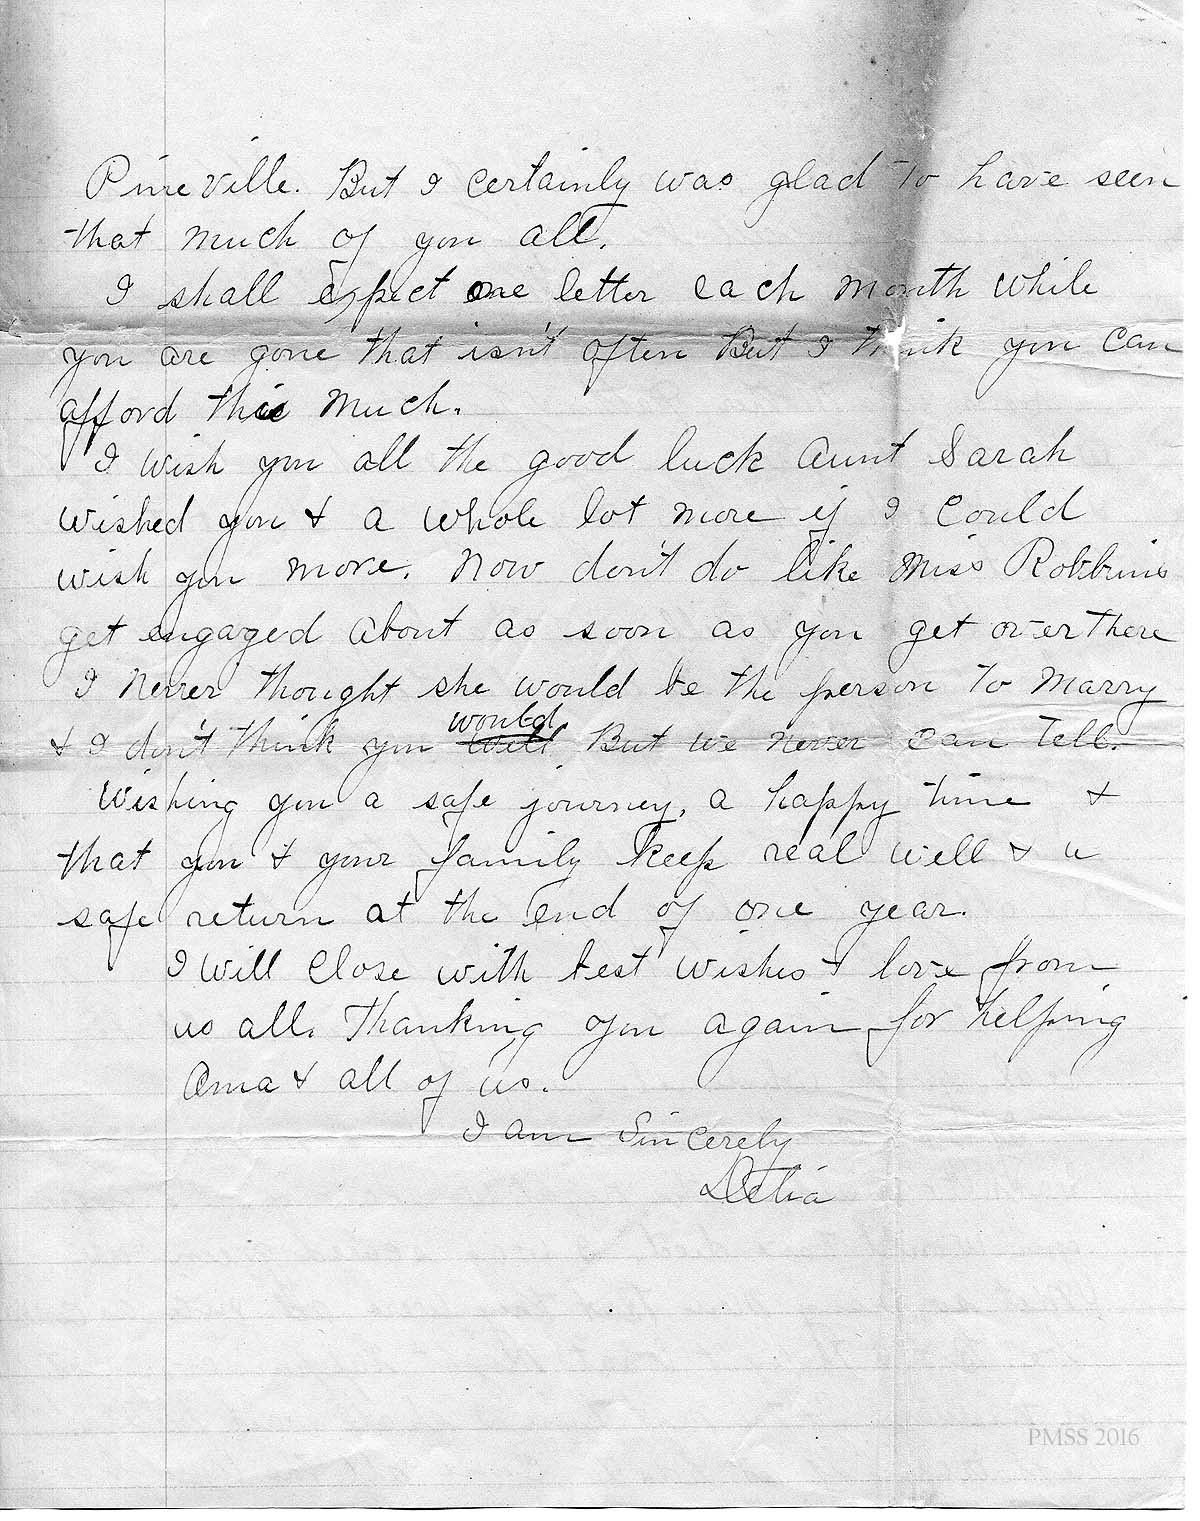 Pineville. But I certainly was glad to have seen
that much of you all.
I shall expect one letter each month while
you are gone that isn't often But I think you can
afford this much.
I wish you all the good luck Aunt Sarah
wished you & a whole lot more if I could
wish you more. Now don't do like Miss Robbins
get engaged about as soon as you get over there
I never thought she would be the person to marry
would
& I don't think you will. But we never can tell.
Wishing you a safe journey, a happy time &
that you & your family keep real well & a
safe return at the end of one year.
I will close with best wishes & love from
us all. Thanking you again for helping
Oma & all of us.
I am Sincerely
Delia
PMSS 2016